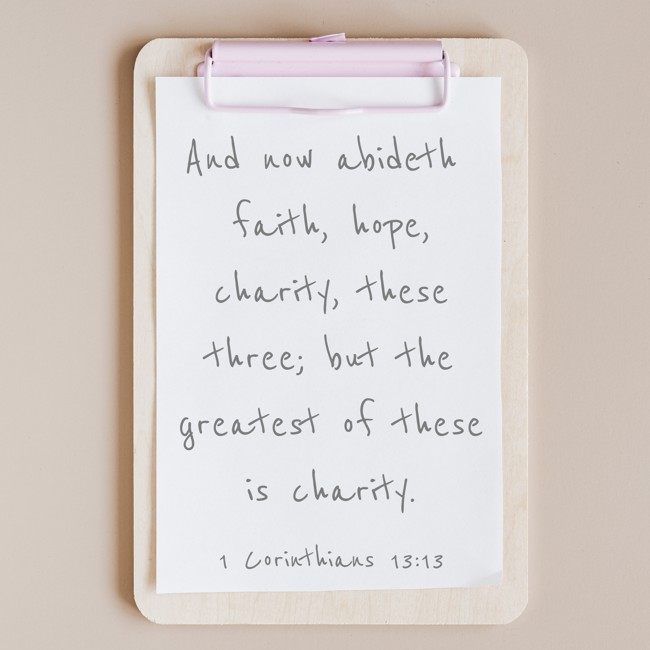 And now abideth
faith, hope,
charity, these
three; but the
greatest of these
is charity.
1 Corinthians 13:13